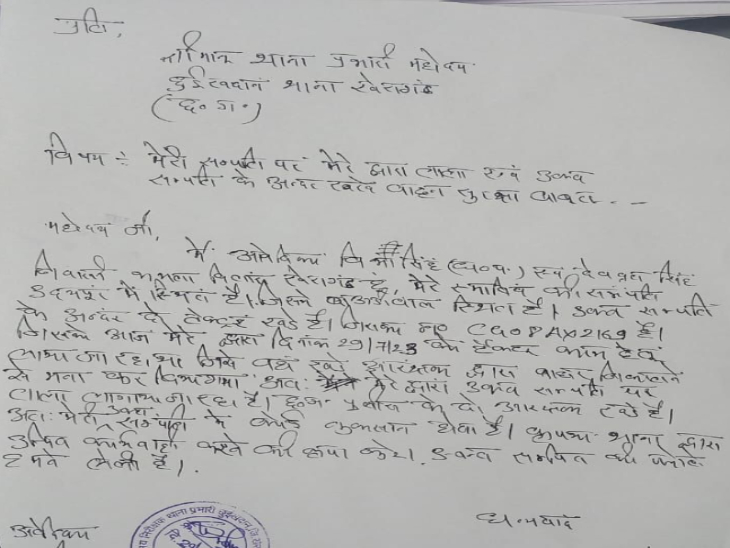 प्रति,
श्रीमान थाना प्रभारी महोदय
छुईखदान थाना खैरागढ़
(छ० ग०)
विषय :- मेरी सम्पत्ति पर मेरे द्वारा ताला एवं उक्त
सम्पत्ति के अन्दर रखे वाहन सुरक्षा बाबत - -
महोदय जी,
मैं आवेदिका सिंह स्व. देवव्रत सिंह
निवासी कमल विलास खैरागढ़ हूं, मेरे स्वामित्व की सम्पत्ति
उदयपुर में स्थित है। जिसमें स्थित है। उक्त सम्पत्ति
के अन्दर दो टेक्टर खडे है। जिसका no CG08AX2169 है।
जिसके आज मेरे द्वारा दिनांक 29/7/23 को टेक्टर काम हेतु
लाया जा रहा था जिसे वहां खडे आरक्षक द्वारा बाहर निकालने
से मना कर दिया गया। अतः मेरे द्वारा उक्त सम्पत्ति पर
ताला लगाया जा रहा है। पुलिस के दो आरक्षक खडे है।
अतः मेरी उक्त सम्पत्ति में कोई नुकसान होता है। कृपया थाना द्वारा
उचित कार्यवाही करने की कृपा करें। उक्त सम्पत्ति की
हमने है।
धन्यवाद
आवेदिका
थाना प्रभारी छुईखदान